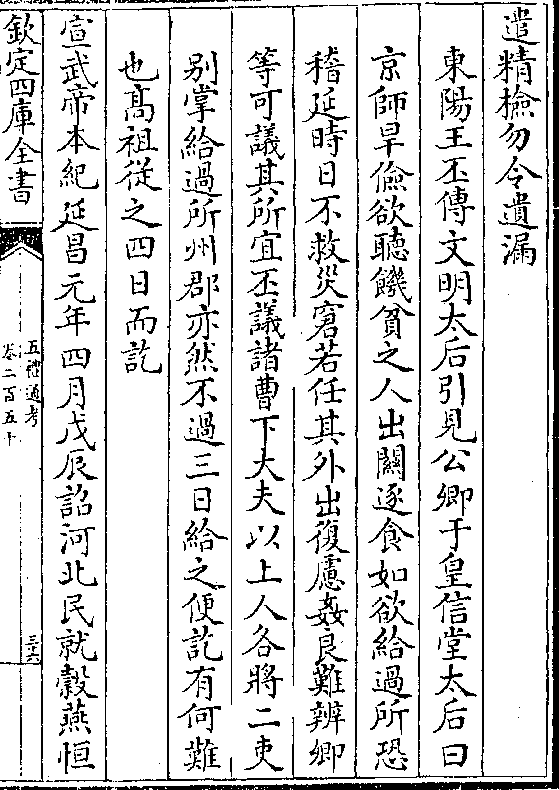 遣精檢勿令遺漏
東陽王丕傳文明太后引見公卿于皇信堂太后曰
京師旱儉欲聽饑貧之人出關逐食如欲給過所恐
稽延時日不救災窘若任其外出復慮姦良難辨卿
等可議其所宜丕議諸曹下大夫以上人各將二吏
别掌給過所州郡亦然不過三日給之便訖有何難
也髙祖従之四日而訖
宣武帝本紀延昌元年四月戊辰詔河北民就穀燕恒
欽定四庫全書
五禮通考
卷二百五十
三六